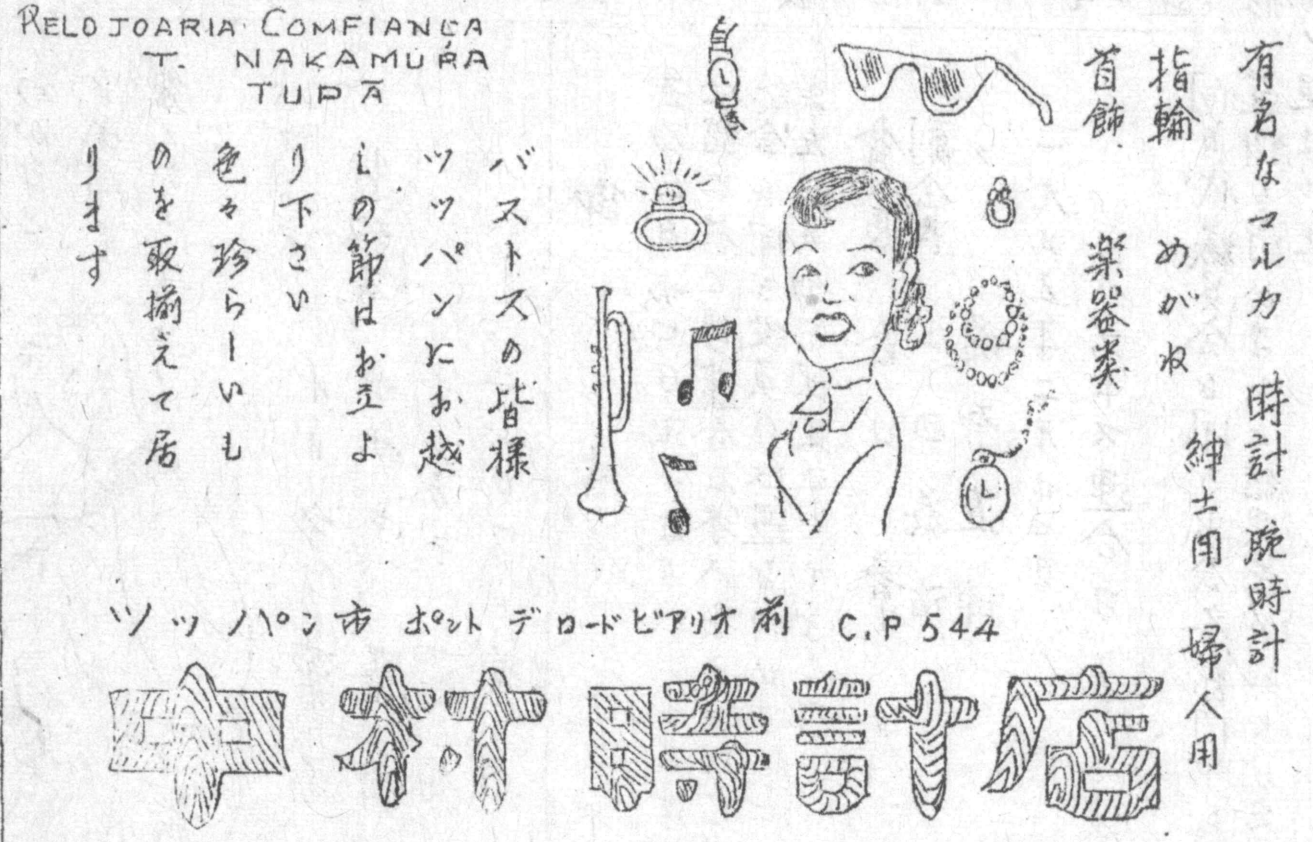 RELOJOARIA COMFIANÇA
T. NAKAMURA
TUPÃ
有名なマルカ 時計 腕時計
紳士用 婦人用
指輪 めがね
首飾 楽器類
バストスの皆様
ツッパンにお越
しの節はお立よ
り下さい
色々珍らしいも
のを取揃えて居
ります
ツッパン市 ポント デ ロードビアリオ前 C.P 544
中村時計店